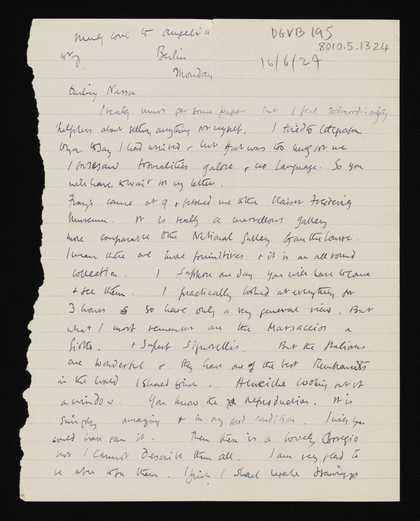 much love to Angelica
DGVB 195
8010.5.1324
Berlin
Monday
16/6/24
Darling Nessa
I really must get some paper but I feel extraordinarily
helpless about getting anything for myself. I tried to telegraph
to you today I had arrived & but that was too long for me
I foresaw formalities galore & no language. So you
will have to wait for my letter.
came at 9 & fetched me to the Kaiser Frederick
Museum. It is really a marvellous gallery
more comparable to the National Gallery than the Louvre.
I mean there are more primitives & it is an all round
collection. I suppose one day you will have to come
& see them. I practically looked at everything for
3 hours & so have only a very general view. But
what I most remember are the Masaccios a
Giotto & superb Signorellis. But the Italians
are wonderful & they have one of the best Rembrandts
in the world I should think. looking out of
a window. You know the reproduction. It is
simply amazing & in very good condition. I wish you
could have seen it. Then there is a lovely Correggio
but I cannot describe them all. I am very glad to
be able to see them. I think I shall make drawings